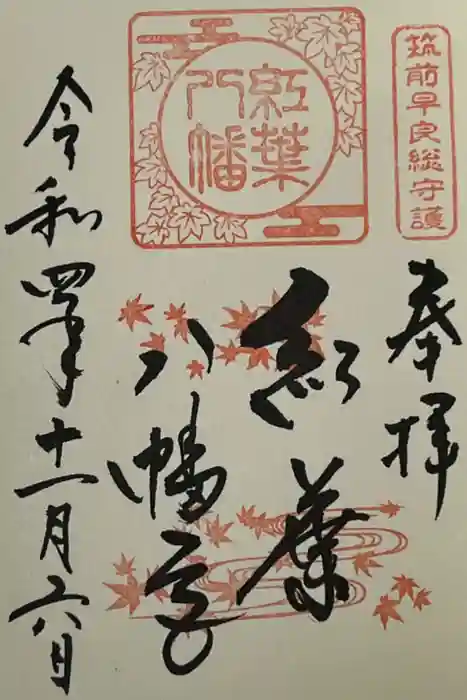 筑前早良総守護
奉拝
紅葉
八幡宮
紅葉
八幡
令和四年十一月六日